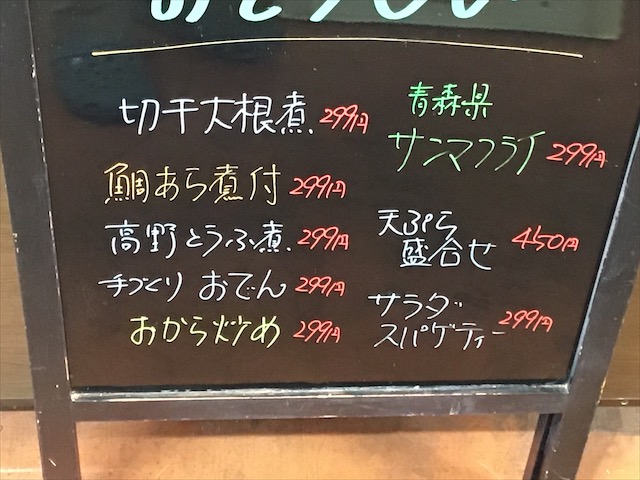 切干大根煮 299円
鯛あら煮付 299円
高野とうふ煮 299円
手づくり おでん 299円
おから炒め 299円
青森県
サンマフライ 299円
天ぷら
盛合せ 450円
サラダ
スパゲティー 299円